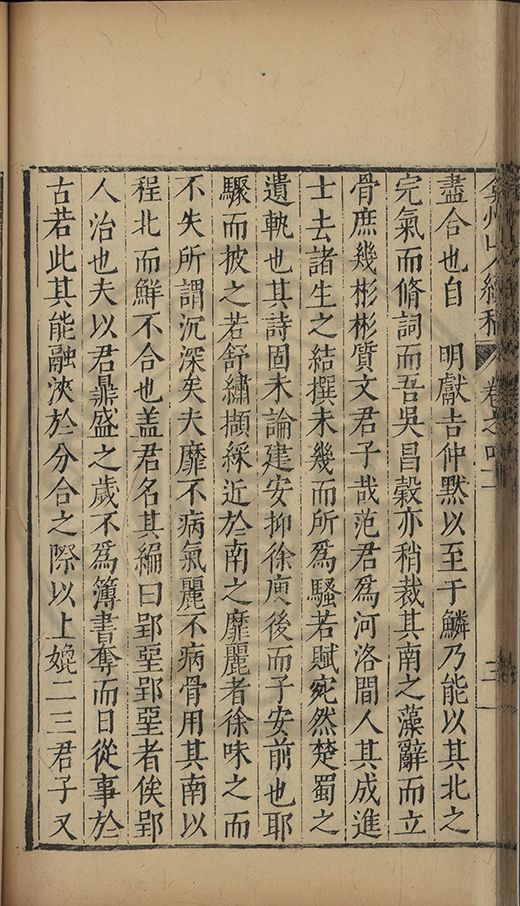 弇州山人續稿 卷之四二 三
盡合也自 明獻吉仲默以至于鱗乃能以其北之
完氣而脩詞而吾吳昌穀亦稍裁其南之藻辭而立
骨庶幾彬彬質文君子哉范君爲河洛間人其成進
士去諸生之結撰未幾而所爲騷若賦宛然楚蜀之
遺軌也其詩固未論建安抑徐庾後而子安前也耶
驟而披之若舒繡擷綵近於南之靡麗者徐味之而
不失所謂沉深矣夫靡不病氣麗不病骨用其南以
程北而鮮不合也盖君名其編曰郢堊郢堊者俟郢
人治也夫以君鼎盛之歲不爲簿書奪而日從事於
古若此其能融浹於分合之際以上媲二三君子又